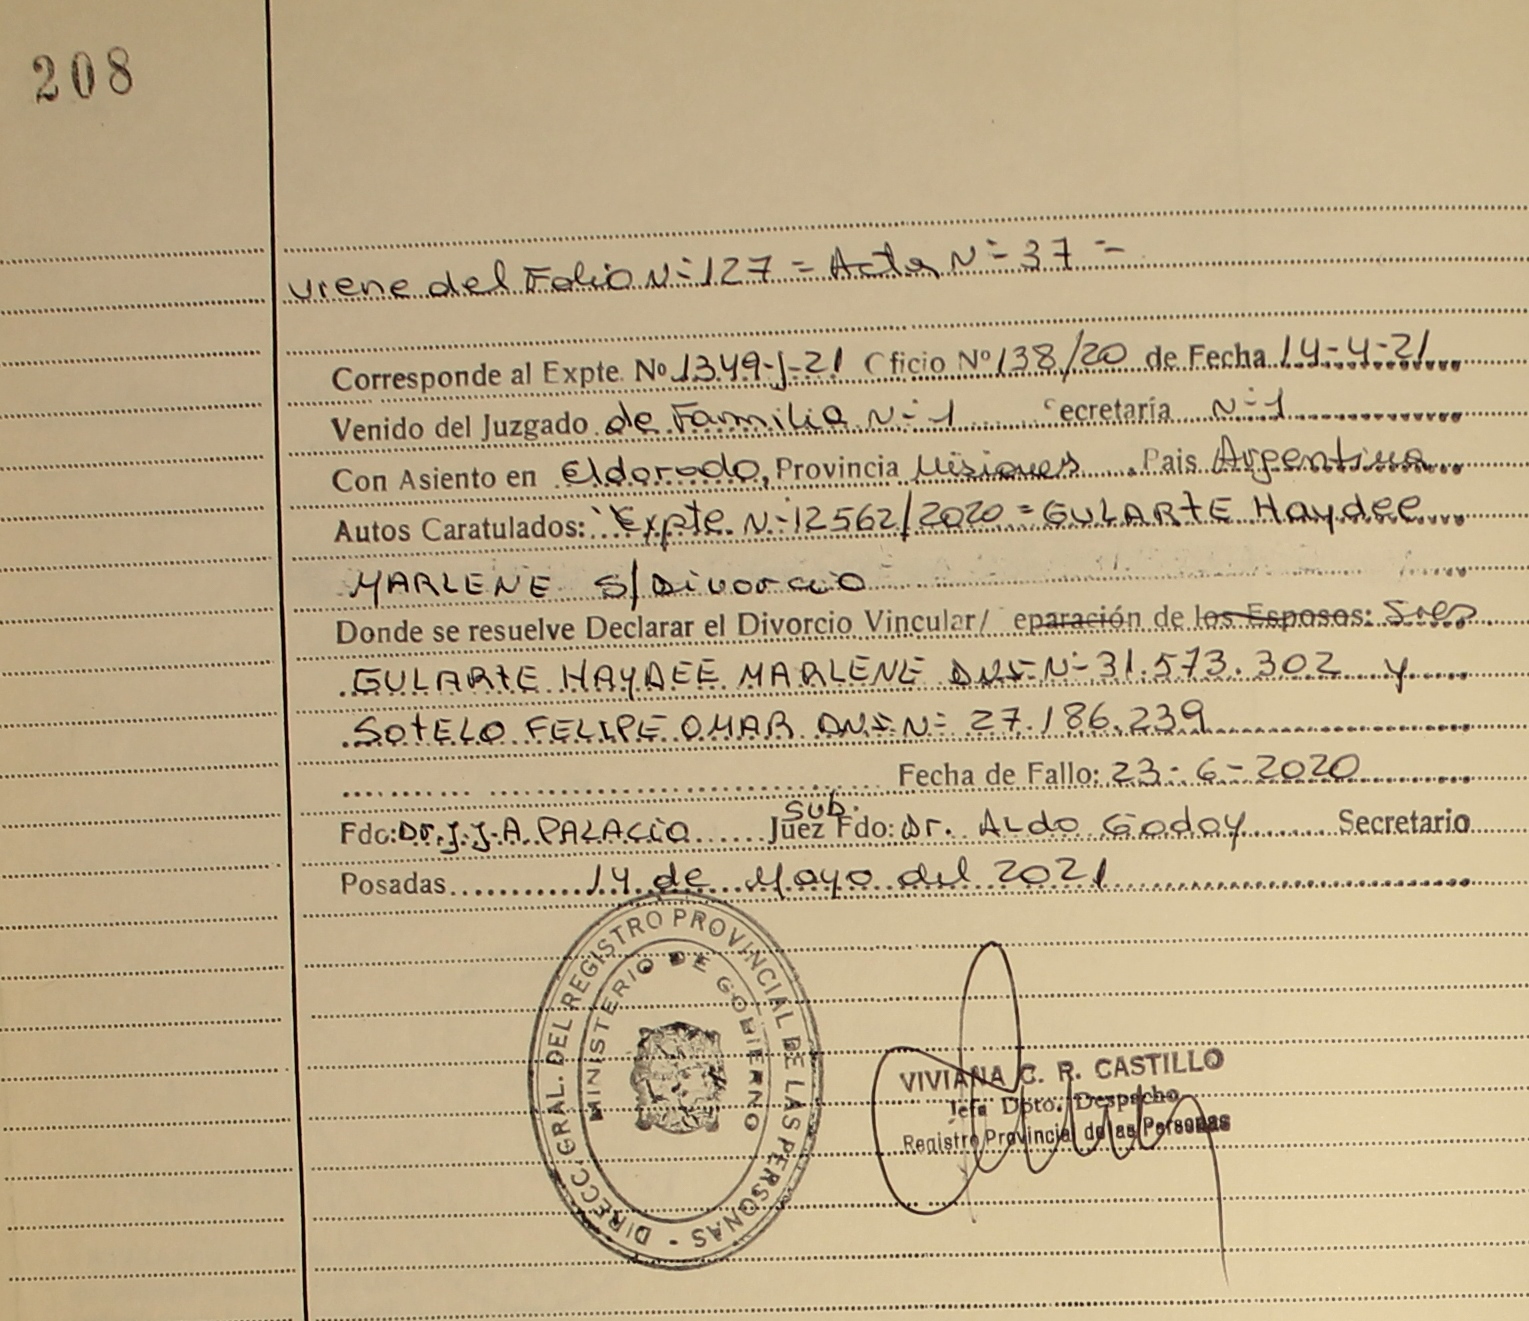 208
viene del Folio N= 127 = Acta N= 37 =
Corresponde al Expte. Nº 1349-J-21 Oficio Nº 138/20 de Fecha 14-4-21
Venido del Juzgado de Familia N=1 Secretaría N=1
Con Asiento en Eldorado, Provincia Misiones Pais Argentina
Autos Caratulados: "Expte. N=12562/2020 = GULARTE Haydee
MARLENE S/Divorcio
Donde se resuelve Declarar el Divorcio Vincular/ eparación de los Esposos: Sres
GULARTE HAYDEE MARLENE DNI N=31.573.302 y
SOTELO FELIPE OMAR DNI N= 27.186.239
Fecha de Fallo: 23-6-2020
Sub.
Fdo: Dr. J.J.A. PALACIO Juez Fdo: Dr. Aldo Godoy Secretario
Posadas 14 de Mayo del 2021
DIRECC. GRAL. DEL REGISTRO PROVINCIAL DE LAS PERSONAS -
MINISTERIO DE GOBIERNO
VIVIANA C. R. CASTILLO
Jefa Dpto. Despacho
Registro Provincial de las Personas